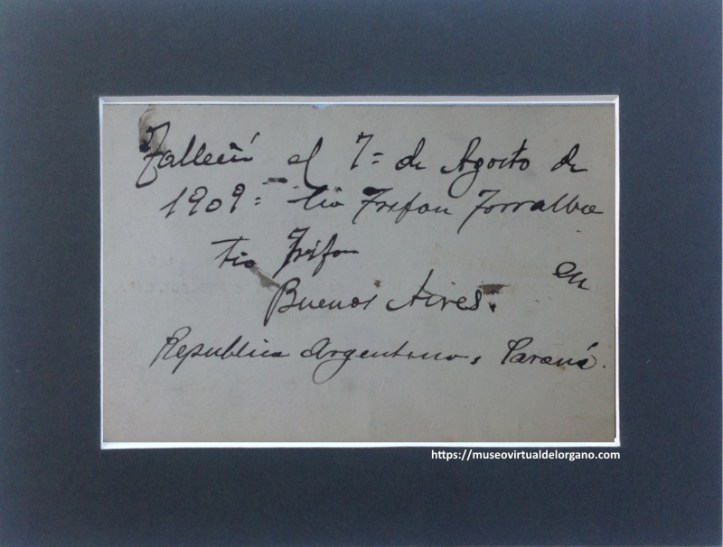 Falleció el 7= de Agosto de
1909= tio Trifon Torralba
Tio Trifon
en
Buenos Aires.
Republica Argentina, Paraná.
https://museovirtualdelorgano.com